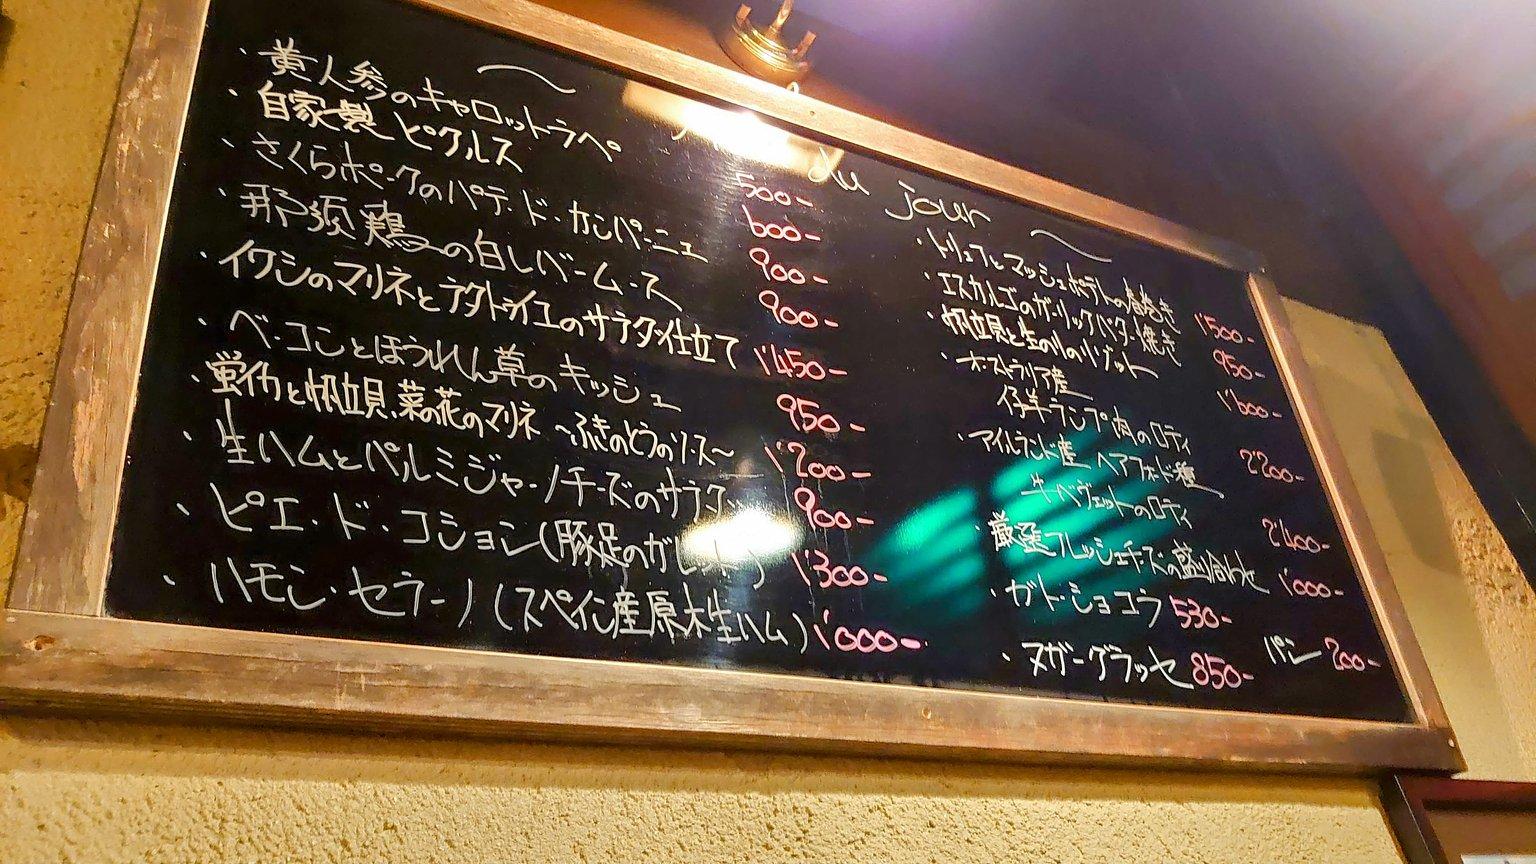 du jour
・黄人参のキャロットラペ 500-
・自家製ピクルス 600-
・さくらポークのパテ・ド・カンパーニュ 900-
・那須鶏の白レバームース 900-
・イワシのマリネとラタトゥイユのサラダ仕立て 1'450-
・ベーコンとほうれん草のキッシュ 950-
・蛍イカと帆立貝、菜の花のマリネ ～ふきのとうのソース～ 1'200-
・生ハムとパルミジャーノチーズのサラダ 900-
・ピエ・ド・コション(豚足のガレット) 1'300-
・ハモン・セラーノ(スペイン産原木生ハム) 1'000-
・トリュフとマッシュポテトの春巻き 1'500-
・エスカルゴのガーリックバター焼き 950-
・帆立貝と生のりのリゾット 1'600-
・オーストラリア産
仔羊ランプ肉のロティ 2'200-
・アイルランド産 ヘアフォード種
牛ベヴェットのロティ 2'400-
・厳選フレッシュチーズの盛り合わせ 1'000-
・ガトーショコラ 530-
・ヌガーグラッセ 850-
パン 200-